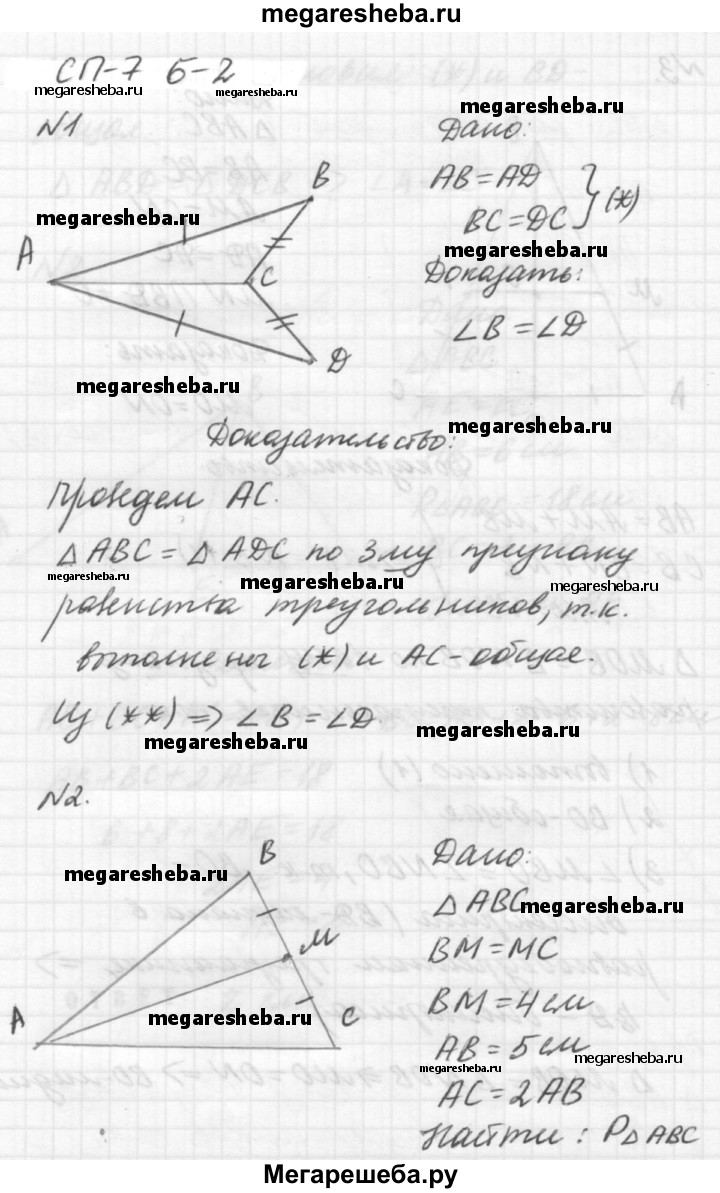 megaresheba.ru
СП-7 Б-2
megaresheba.ru
megaresheba.ru
megaresheba.ru
№1
Дано:
AB = AD
BC = DC } (*)
megaresheba.ru
Доказать:
∠B = ∠D
B
megaresheba.ru
A
C
D
megaresheba.ru
megaresheba.ru
Доказательство:
Проведем AC.
△ABC = △ADC по 3му признаку
megaresheba.ru
megaresheba.ru
megaresheba.ru
равенства треугольников, т.к.
выполнены (*) и AC - общая.
Из (**) => ∠B = ∠D.
megaresheba.ru
megaresheba.ru
№2.
B
megaresheba.ru
M
A
megaresheba.ru
C
Дано:
△ABC
megaresheba.ru
BM = MC
BM = 4 см
AB = 5 см
megaresheba.ru
megaresheba.ru
AC = 2AB
Найти: P△ABC
Мегарешеба.ру